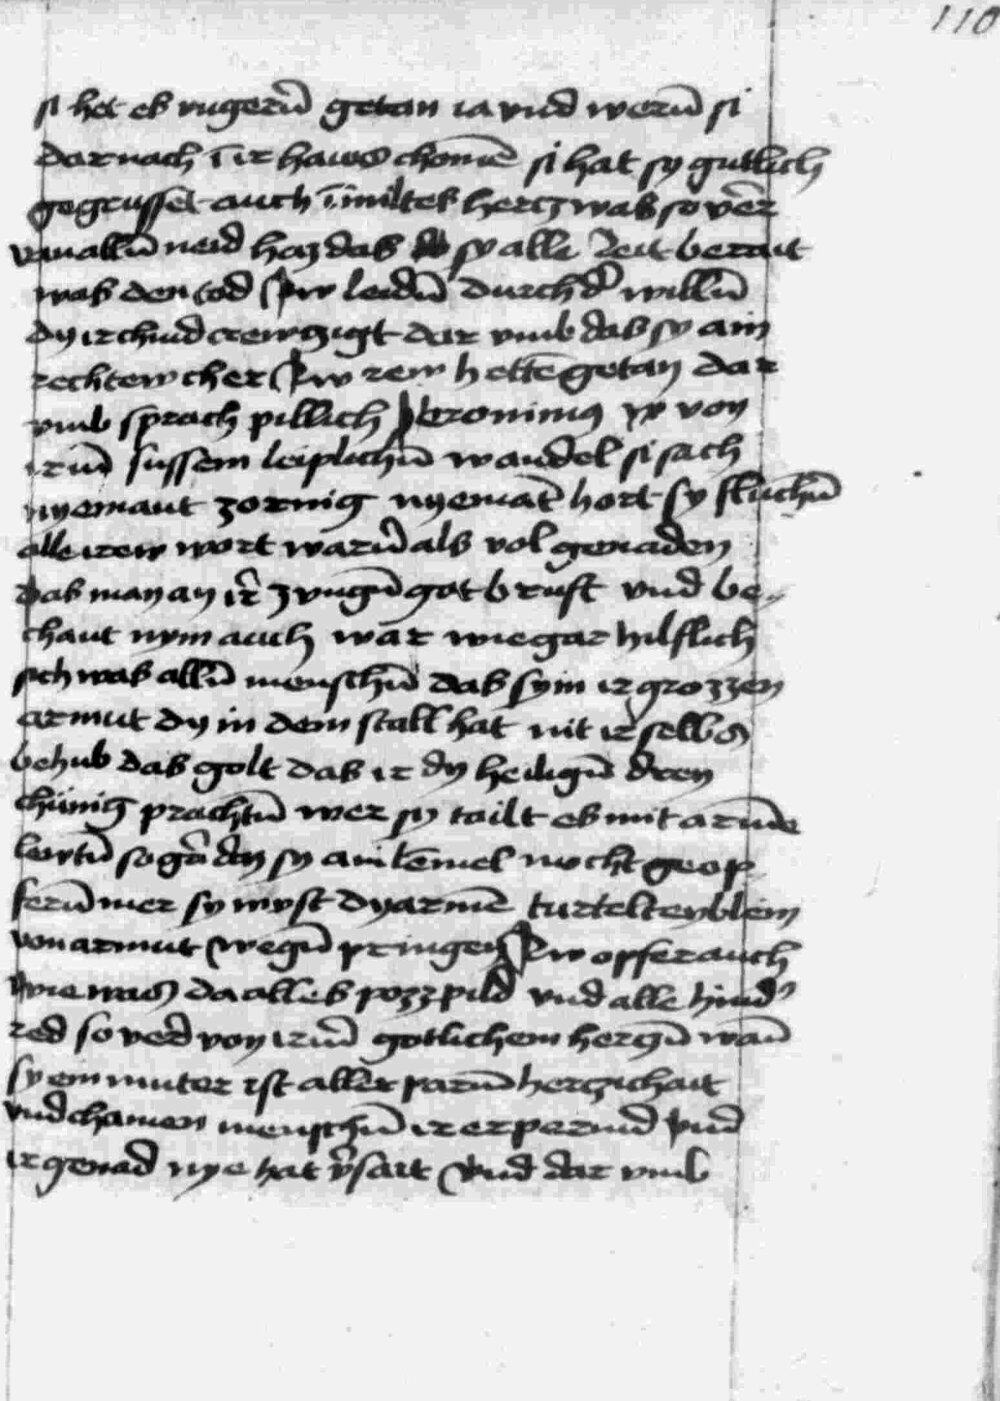 110
si het es vngerñ getan ia vnd werñ si
darnach ī ir haws chomē si hat sy gutlich
gegrusset auch ī miltes hercz was so verr
von allñ neid haz das sy alle zeit berait
was den tod zw leidñ durch d' willñ
dy ir chind crewczigt dar vmb das sy ain
rechtew cher zw rew hettē getan dar
vmb sprach pillich Jeronimus von
irm̄ sussem leiplichñ wandel si sach
nyemant zornig nyemāt hort sy fluchñ
alle irew wort warñ als vol genaden
das man an ir̄ zvngñ got brust vnd be
chant nym auch war wie gar hilflich
sich was allñ menschñ das sy in ir grozzen
armut dy in dem stall hat nit ir selbs
behub das golt das ir dy heiligñ drey
chünig prachtñ wer sy tailt es mit armē
lewtñ so gar das sy ain lemel nicht geop
ferñ mer sy must dy armē turteltewblein
von armut wegñ pringen zw opfer auch
wie was da alles pozz pild vnd alle hind'
red so verr von irm̄ gotlichem herczñ wañ
sy ein muter ist aller parmherczichait
vnd chainen menschñ ir erpermd vnd
ir genad nye hat v'sait vnd dar vmb